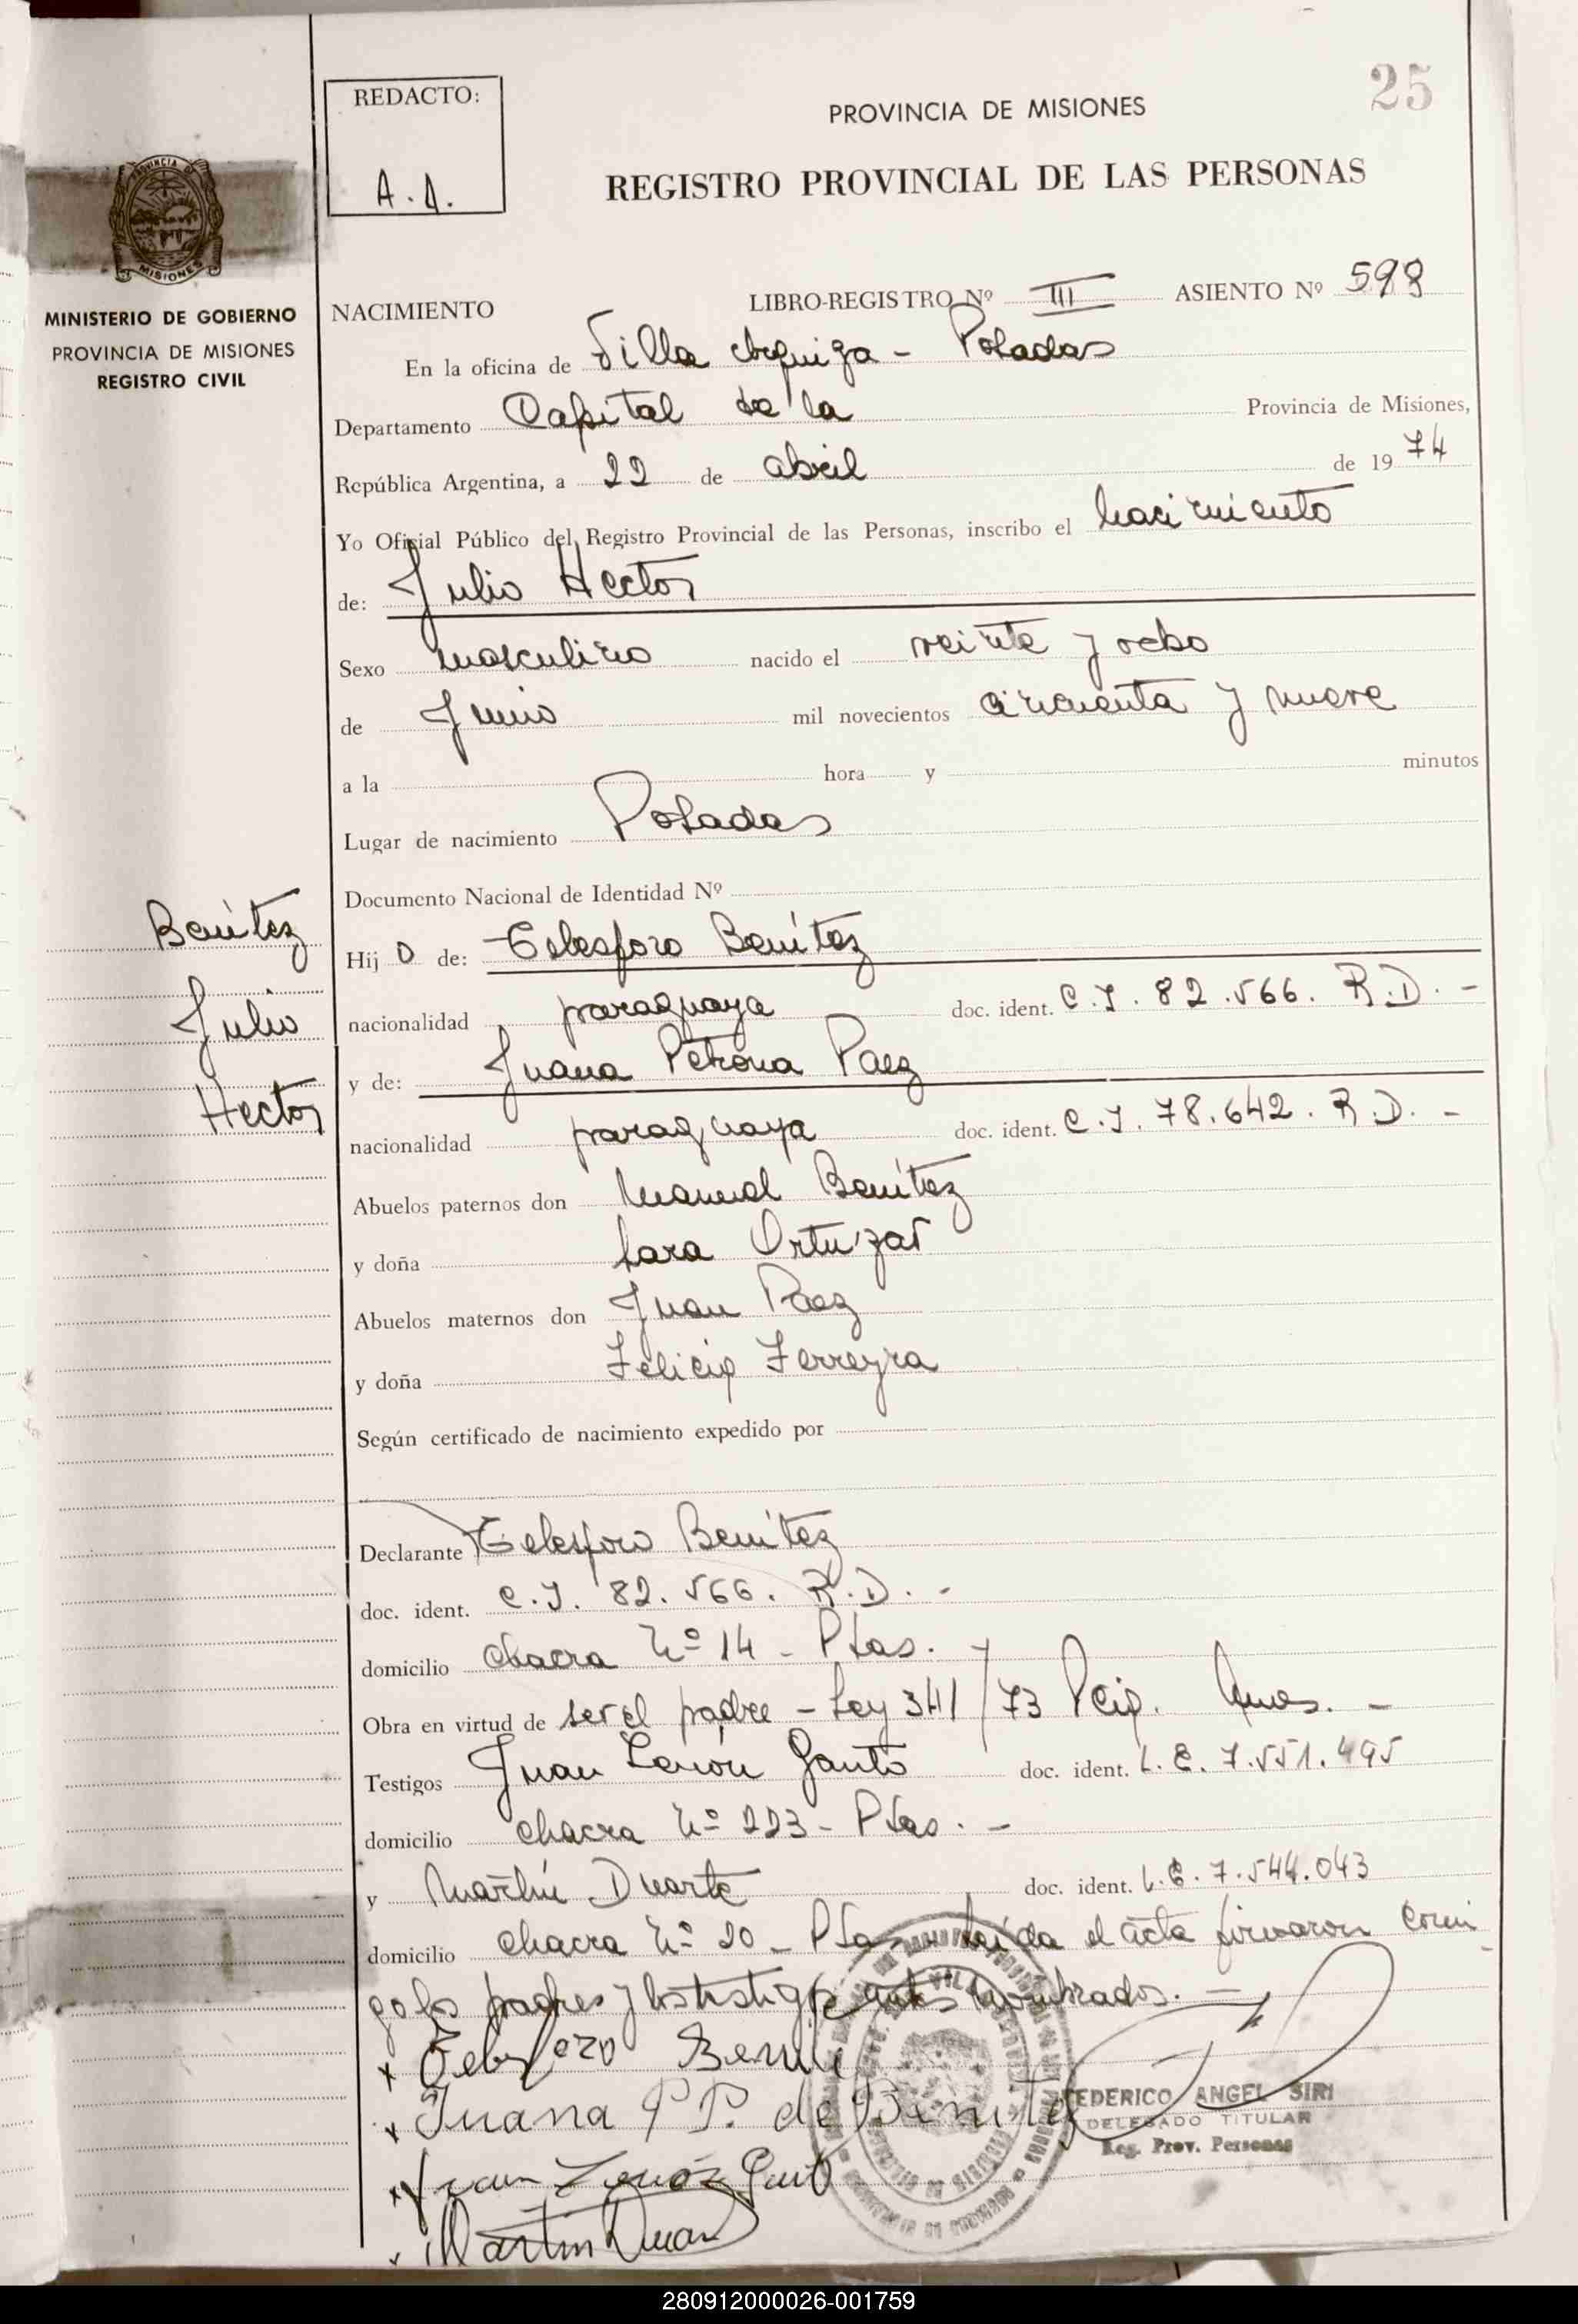 25
REDACTO:
A.A.
PROVINCIA DE MISIONES
REGISTRO PROVINCIAL DE LAS PERSONAS
PROVINCIA DE MISIONES
MINISTERIO DE GOBIERNO
PROVINCIA DE MISIONES
REGISTRO CIVIL
NACIMIENTO LIBRO-REGISTRO Nº III ASIENTO Nº 598
En la oficina de Villa Urquiza - Posadas
Departamento Capital de la Provincia de Misiones,
República Argentina, a 22 de abril de 1974
Yo Oficial Público del Registro Provincial de las Personas, inscribo el nacimiento
de: Julio Hector
Sexo masculino nacido el veinte y ocho
de Junio mil novecientos cincuenta y nueve
a la hora y minutos
Lugar de nacimiento Posadas
Documento Nacional de Identidad Nº
Benítez
Julio
Hector
Hijo de: Telesforo Benítez
nacionalidad paraguaya doc. ident. C.I. 82.566. R.D. -
y de: Juana Petrona Paez
nacionalidad paraguaya doc. ident. C.I. 78.642. R.D. -
Abuelos paternos don Manuel Benítez
y doña Sara Ortuzar
Abuelos maternos don Juan Paez
y doña Felicia Ferreyra
Según certificado de nacimiento expedido por
Declarante Telesforo Benítez
doc. ident. C.I. 82.566. R.D. -
domicilio chacra Nº 14 - Pdas. -
Obra en virtud de ser el padre - Ley 341/73 Pcia. Mnes. -
Testigos Juan Zenón Gauto doc. ident. L.E. 7.551.495
domicilio chacra Nº 223 - Pdas. -
y Martín Duarte doc. ident. L.E. 7.544.043
domicilio chacra Nº 20 - Pdas leída el acta firmaron conmi-
go los padres y los testigos antes nombrados. -
x Telesforo Benítez
x Juana P P. de Benitez
x Juan Zenón Gauto
x Martin Duarte
FEDERICO ANGEL SIRI
DELEGADO TITULAR
Reg. Prov. Personas
280912000026-001759